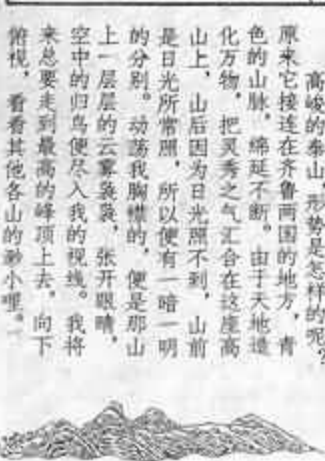 高峻的泰山，形势是怎样的呢？
原来它接连在齐鲁两国的地方，青
色的山脉，绵延不断。由于天地造
化万物，把灵秀之气汇合在这座高
山上，山后因为日光照不到，山前
是日光所常照，所以便有一暗一明
的分别。动荡我胸襟的，便是那山
上一层层的云雾袅袅，张开眼睛，
空中的归鸟便尽入我的视线。我将
来总要走到最高的峰顶上去，向下
俯视，看看其他各山的渺小哩。